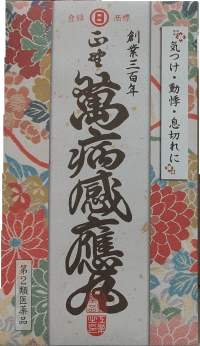 登録 商標
日
創業三百年
正野
萬病感應丸
気つけ・動悸・息切れに
第2類医薬品